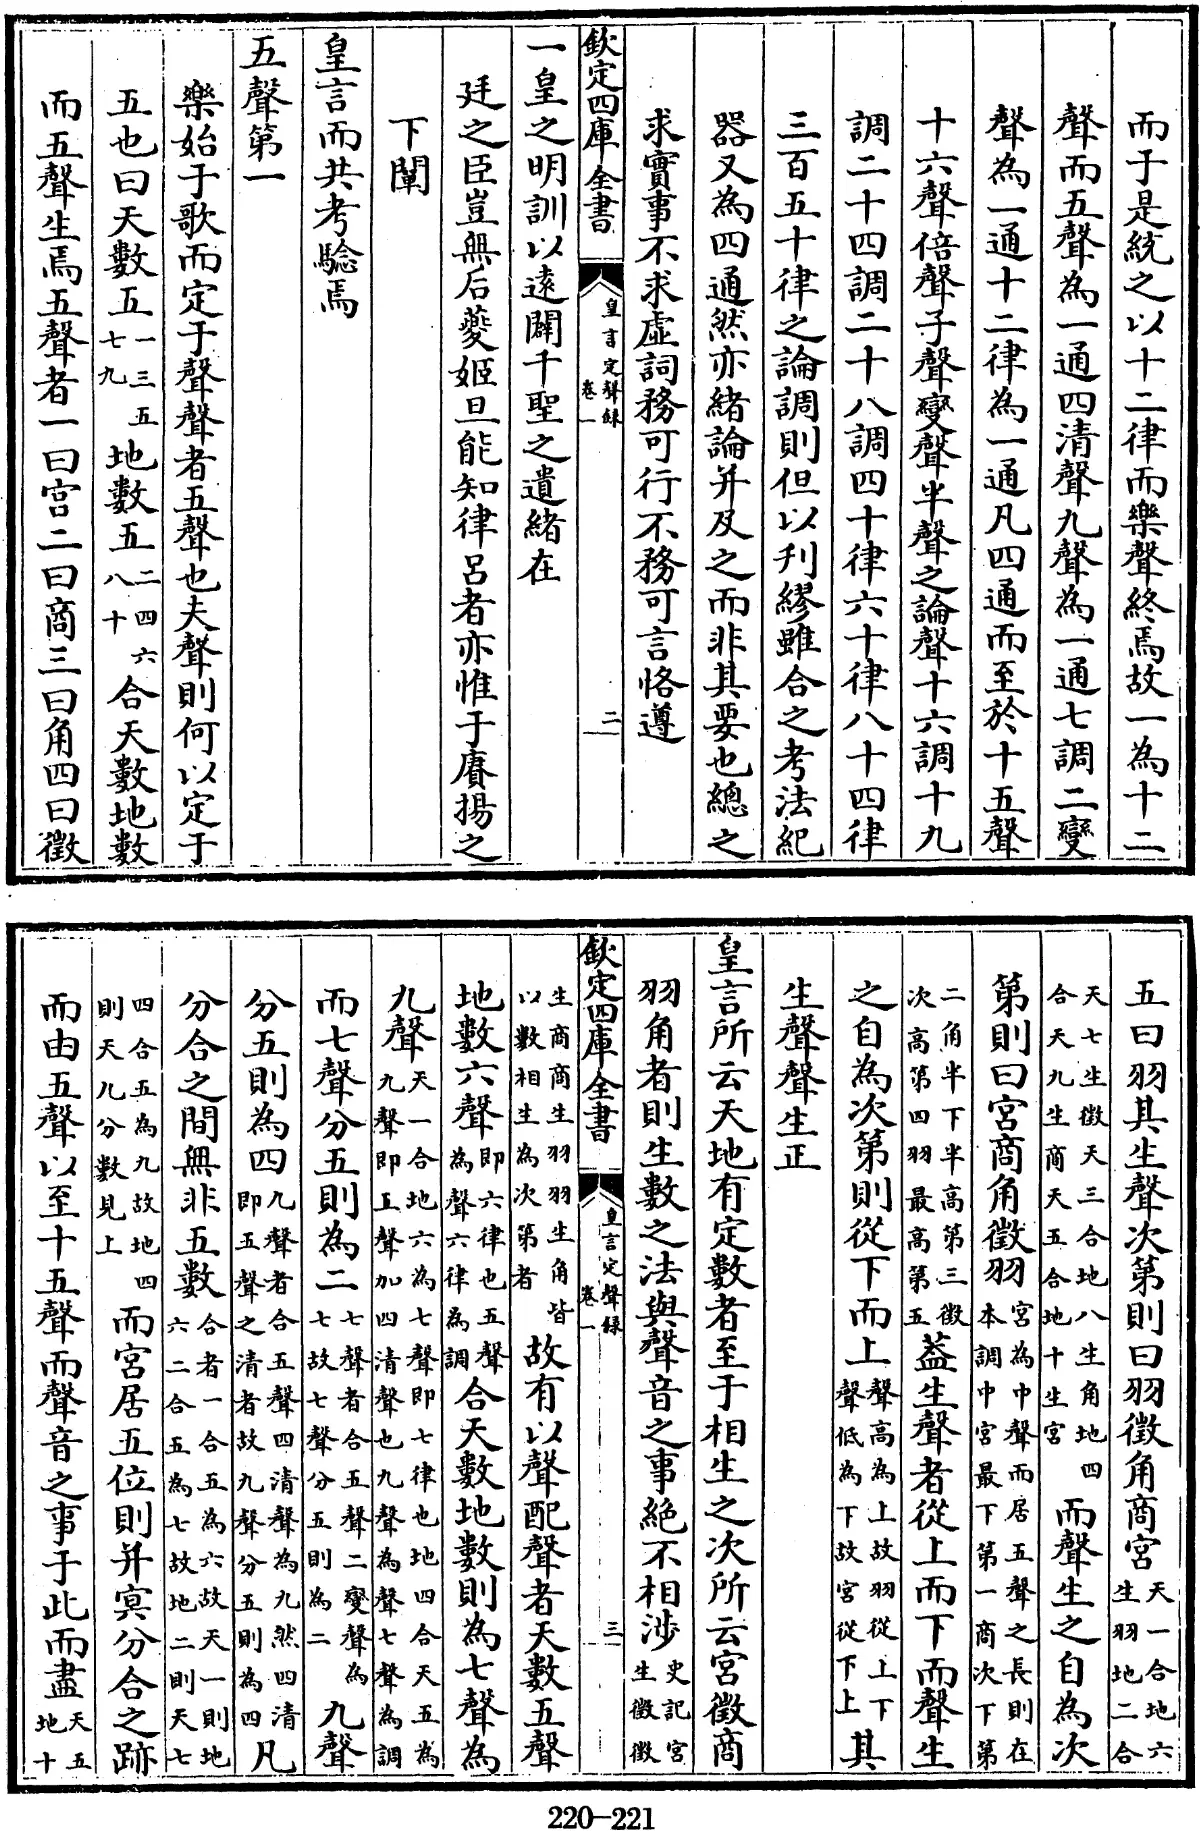 而于是統之以十二律而樂聲終焉故一為十二
聲而五聲為一通四清聲九聲為一通七調二變
聲為一通十二律為一通凡四通而至於十五聲
十六聲倍聲子聲變聲半聲之論聲十六調十九
調二十四調二十八調四十律六十律八十四律
三百五十律之論調則但以刋繆雖合之考法紀
器又為四通然亦緒論并及之而非其要也總之
求實事不求虛詞務可行不務可言恪遵
欽定四庫全書 皇言定聲録 卷一 二
一皇之明訓以遠闢千聖之遺緒在
廷之臣豈無后夔姬旦能知律呂者亦惟于賡揚之
下闡
皇言而共考驗焉
五聲第一
樂始于歌而定于聲聲者五聲也夫聲則何以定于
五也曰天數五一三五七九地數五二四六八十合天數地數
而五聲生焉五聲者一曰宫二曰商三曰角四曰徵
五曰羽其生聲次第則曰羽徵角商宫天一合地六生羽地二合
天七生徵天三合地八生角地四合天九生商天五合地十生宫而聲生之自為次
第則曰宫商角徵羽宫為中聲而居五聲之長則在本調中宫最下第一商次下第
二角半下半高第三徵次高第四羽最高第五葢生聲者從上而下而聲生
之自為次第則從下而上聲高為上故羽從上下聲低為下故宫從下上其
生聲聲生正
皇言所云天地有定數者至于相生之次所云宫徵商
羽角者則生數之法與聲音之事絶不相涉史記宫生徵徵
欽定四庫全書 皇言定聲録 卷一 三
生商商生羽羽生角皆以數相生為次第者故有以聲配聲者天數五聲
地數六聲即六律也五聲為聲六律為調合天數地數則為七聲為
九聲天一合地六為七聲即七律也地四合天五為九聲即五聲加四清聲也九聲為聲七聲為調
而七聲分五則為二七聲者合五聲二變聲為七故七聲分五則為二九聲
分五則為四九聲者合五聲四清聲為九然四清即五聲之清者故九聲分五則為四凡
分合之間無非五數合者一合五為六故天一則地六二合五為七故地二則天七
四合五為九故地四則天九分數見上而宫居五位則并冥分合之跡
而由五聲以至十五聲而聲音之事于此而盡天五地十
220-221